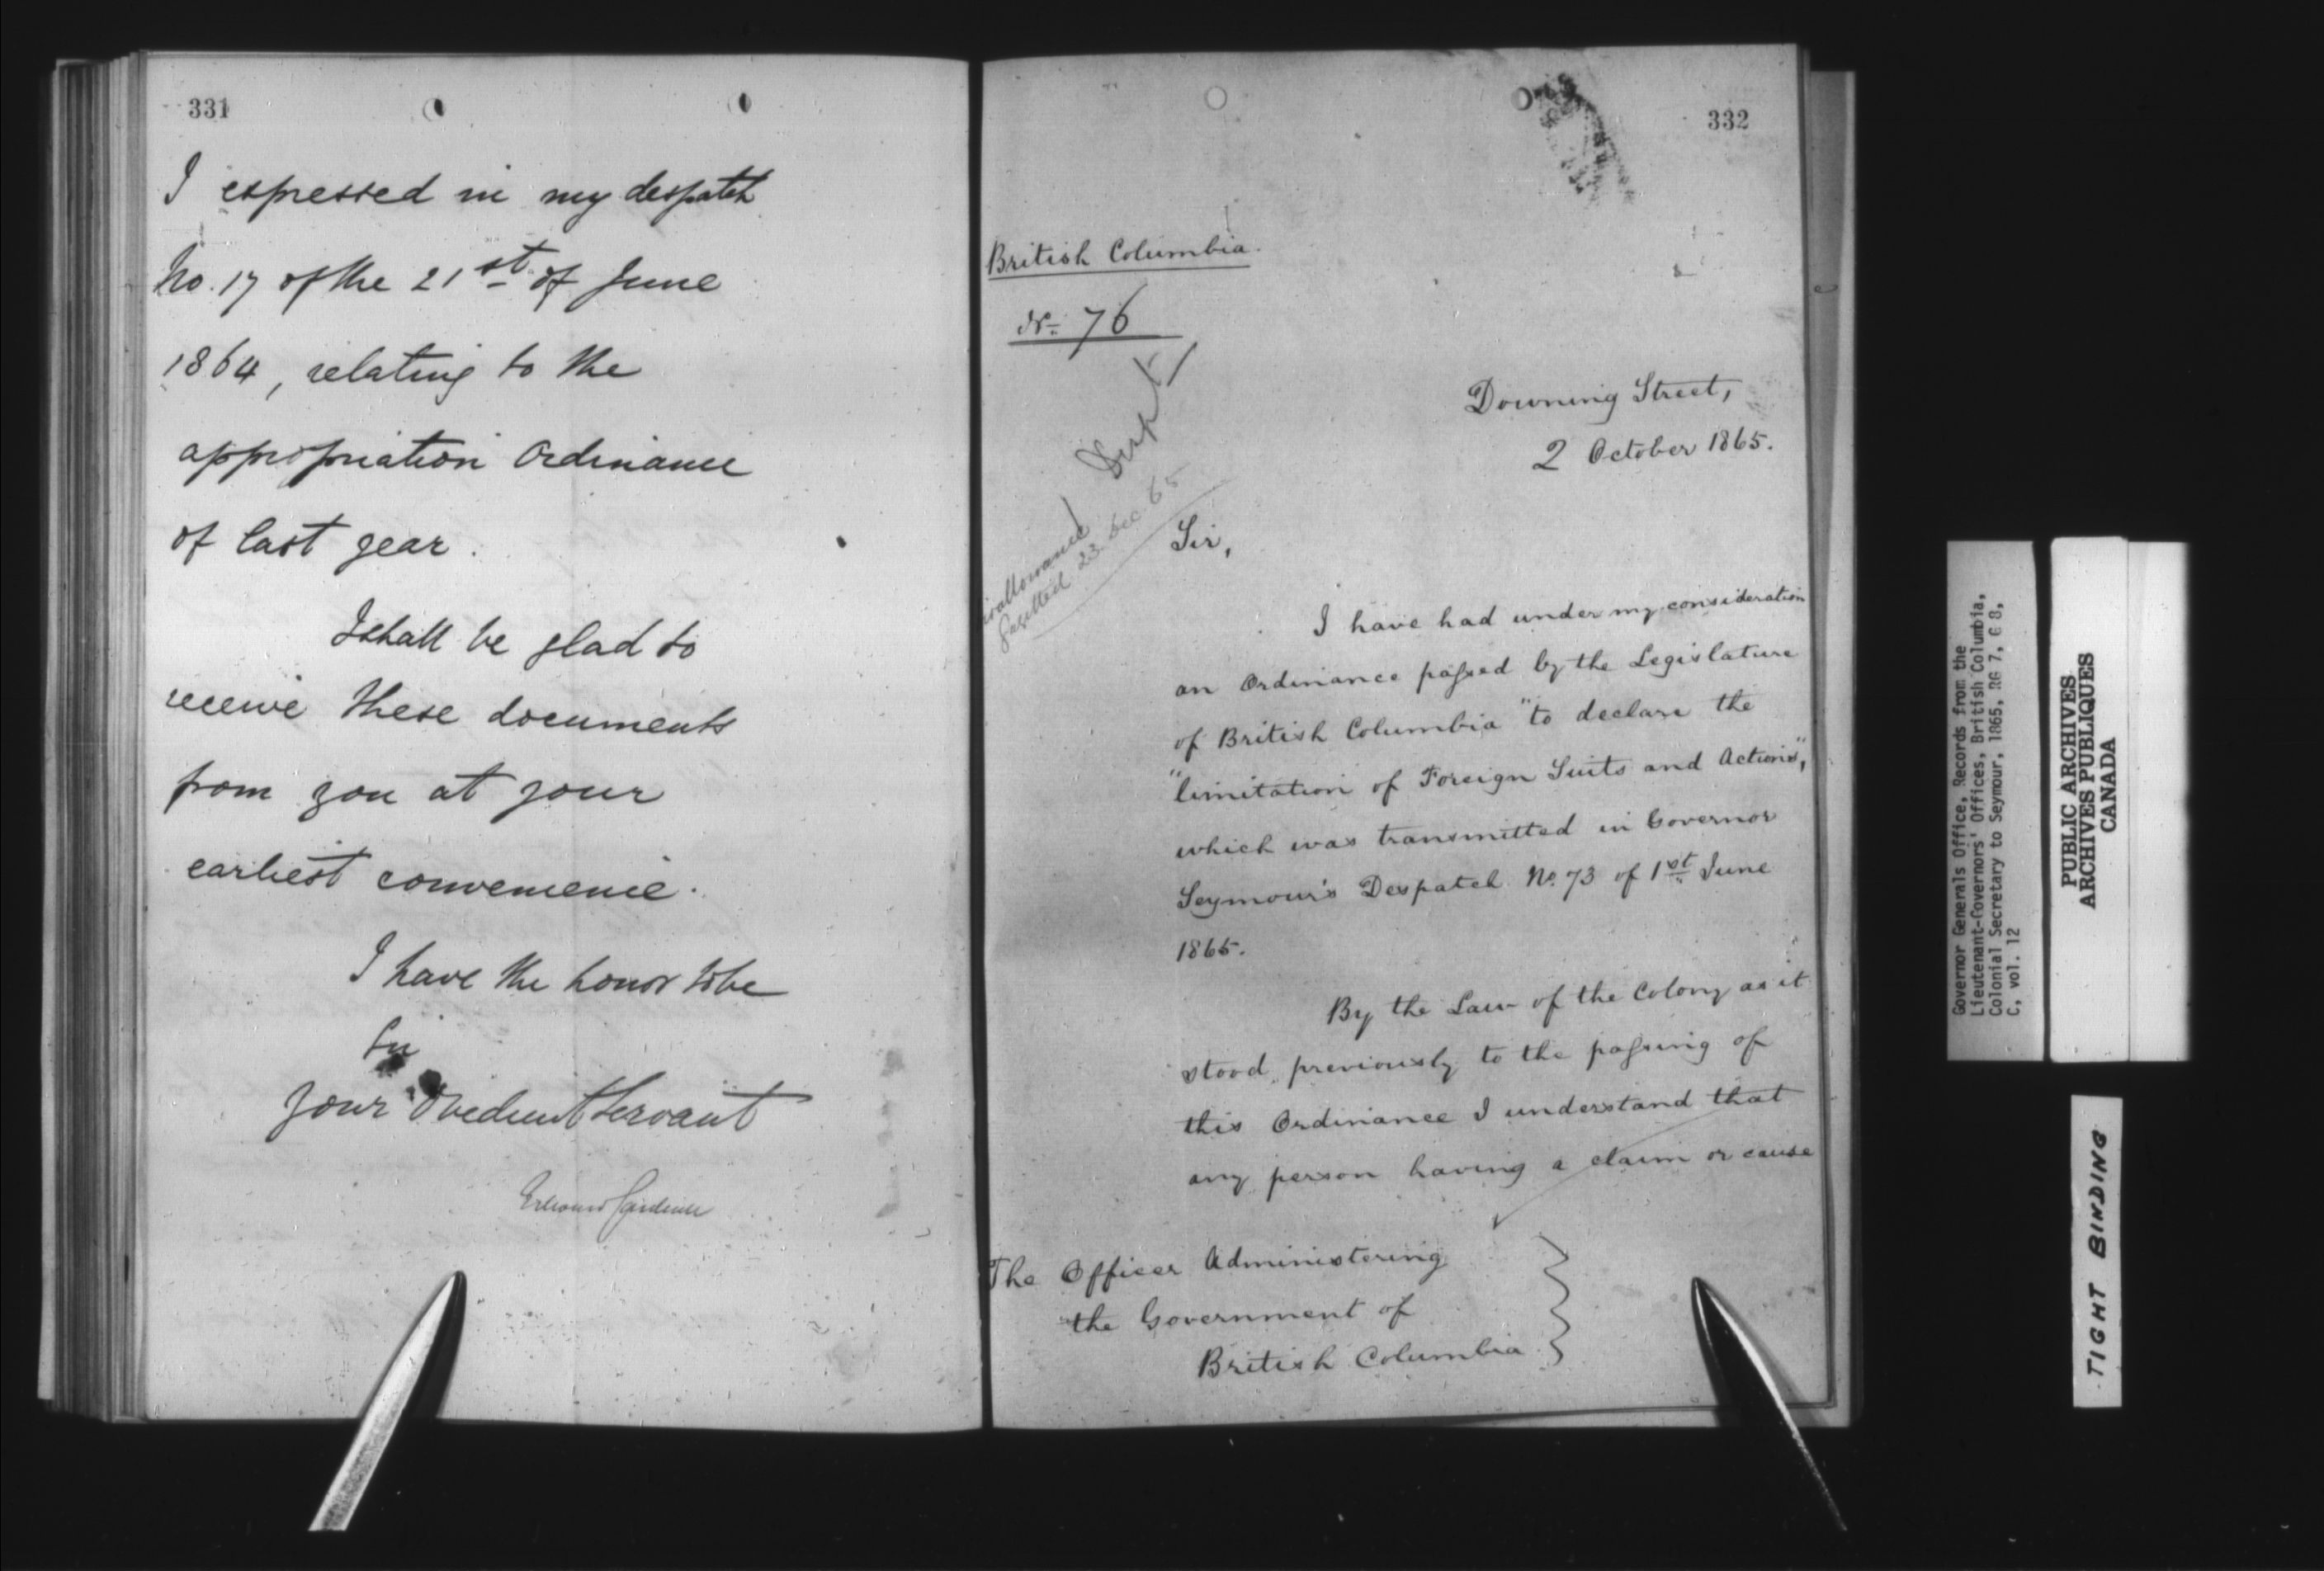 331
I expressed in my despatch
No. 17 of the 21st of June
1864, relating to the
appropriation Ordinance
of last year.
I shall be glad to
receive these documents
from you at your
earliest convenience.
I have the honor to be
Sir
Your Obedient Servant
Edward Cardwell
332
British Columbia.
No. 76
Downing Street,
2 October 1865.
gazetted 23 Dec 65
Sir,
I have had under my consideration
an Ordinance passed by the Legislature
of British Columbia "to declare the
"limitation of Foreign Suits and Actions",
which was transmitted in Governor
Seymour's Despatch No. 73 of 1st June
1865.
By the Law of the Colony as it
stood previously to the passing of
this Ordinance I understand that
any person having a claim or cause
The Officer Administering
the Government of
British Columbia
Governor Generals Office, Records from the
Lieutenant-Governors' Offices, British Columbia,
Colonial Secretary to Seymour, 1865, RG 7, G 8,
C, vol. 12
PUBLIC ARCHIVES
ARCHIVES PUBLIQUES
CANADA
TIGHT BINDING